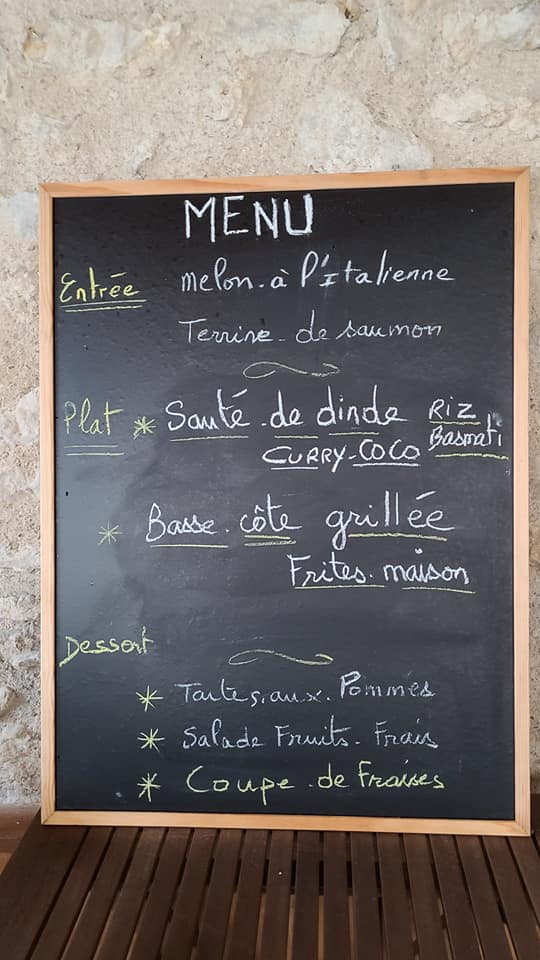 MENU
Entrée melon à l'Italienne
Terrine de saumon
Plat * Sauté de dinde RIZ
CURRY-COCO Basmati
* Basse côte grillée
Frites maison
Dessert
* Tartes aux Pommes
* Salade Fruits Frais
* Coupe de Fraises